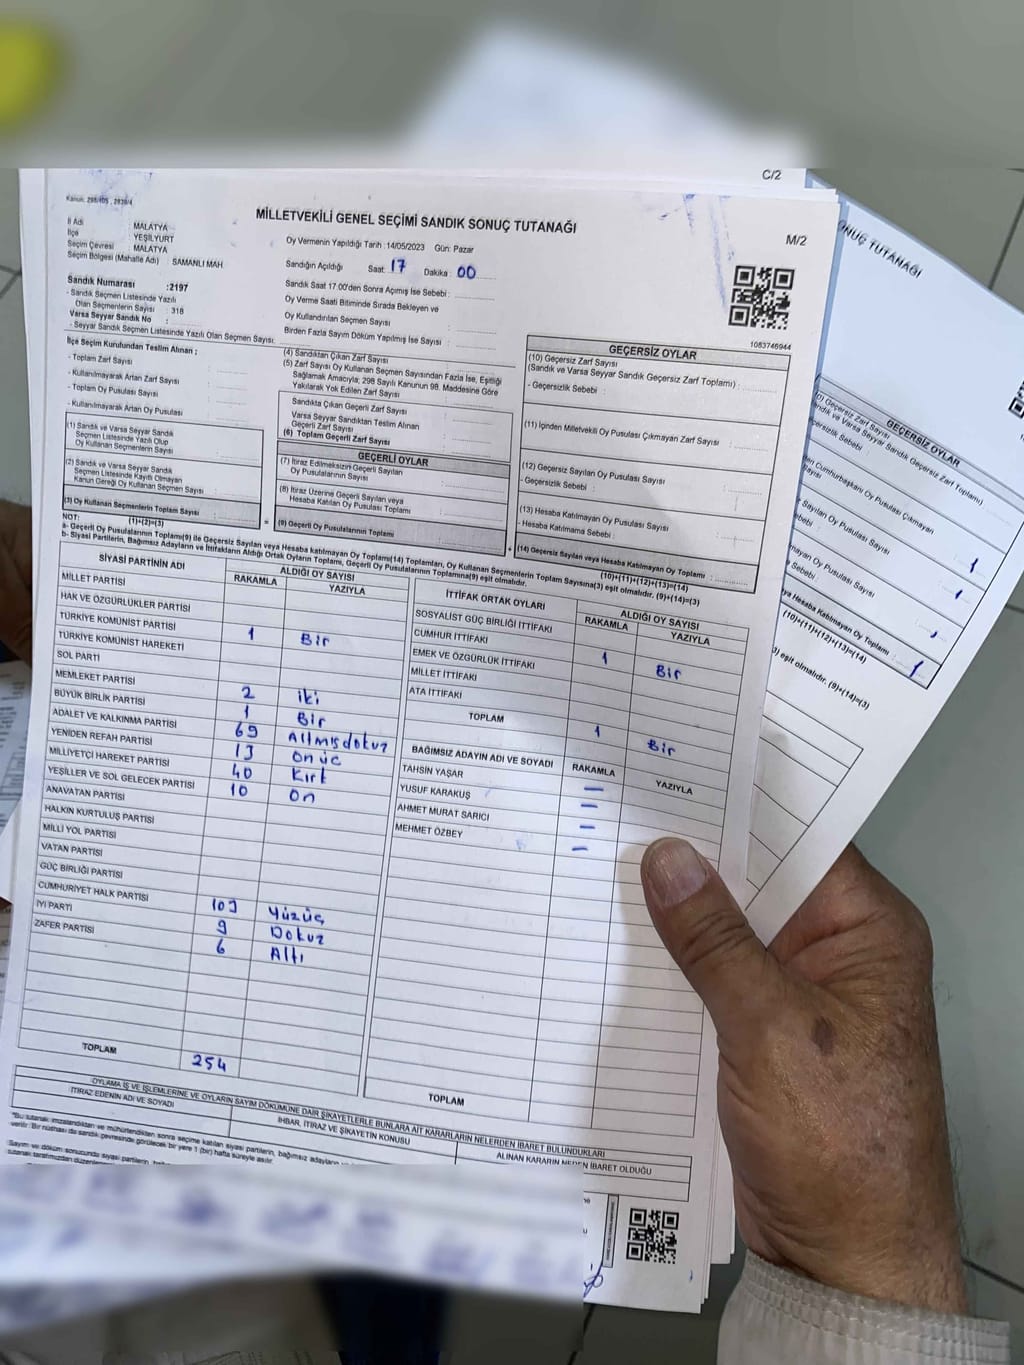 C/2
Kanun: 298/105 , 2839/4
MİLLETVEKİLİ GENEL SEÇİMİ SANDIK SONUÇ TUTANAĞI
M/2
İl Adı MALATYA
İlçe YEŞİLYURT
Seçim Çevresi MALATYA
Seçim Bölgesi (Mahalle Adı) SAMANLI MAH.
Oy Vermenin Yapıldığı Tarih :14/05/2023 Gün: Pazar
Sandığın Açıldığı Saat 17 Dakika 00
Sandık Saat 17.00'den Sonra Açımış İse Sebebi :
Oy Verme Saati Bitiminde Sırada Bekleyen ve
Oy Kullandırılan Seçmen Sayısı :
Birden Fazla Sayım Döküm Yapılmış İse Sayısı :
Sandık Numarası :2197
- Sandık Seçmen Listesinde Yazılı
Olan Seçmenlerin Sayısı : 318
Varsa Seyyar Sandık No :
- Seyyar Sandık Seçmen Listesinde Yazılı Olan Seçmen Sayısı:
1083746944
İlçe Seçim Kurulundan Teslim Alınan ;
- Toplam Zarf Sayısı :
- Kullanılmayarak Artan Zarf Sayısı :
- Toplam Oy Pusulası Sayısı :
- Kullanılmayarak Artan Oy Pusulası :
(1) Sandık ve Varsa Seyyar Sandık
Seçmen Listesinde Yazılı Olup
Oy Kullanan Seçmenlerin Sayısı
(2) Sandık ve Varsa Seyyar Sandık
Seçmen Listesinde Kayıtlı Olmayan
Kanun Gereği Oy Kullanan Seçmen Sayısı
(3) Oy Kullanan Seçmenlerin Toplam Sayısı
(1)+(2)=(3)
(4) Sandıktan Çıkan Zarf Sayısı
(5) Zarf Sayısı Oy Kullanan Seçmen Sayısından Fazla İse, Eşitliği
Sağlamak Amacıyla; 298 Sayılı Kanunun 98. Maddesine Göre
Yakılarak Yok Edilen Zarf Sayısı
Sandıkta Çıkan Geçerli Zarf Sayısı
Varsa Seyyar Sandıktan Teslim Alınan
Geçerli Zarf Sayısı
(6) Toplam Geçerli Zarf Sayısı
GEÇERLİ OYLAR
(7) İtiraz Edilmeksizin Geçerli Sayılan
Oy Pusulalarının Sayısı
(8) İtiraz Üzerine Geçerli Sayılan veya
Hesaba Katılan Oy Pusulası Toplamı
(9) Geçerli Oy Pusulalarının Toplamı
GEÇERSİZ OYLAR
(10) Geçersiz Zarf Sayısı
(Sandık ve Varsa Seyyar Sandık Geçersiz Zarf Toplamı) :
- Geçersizlik Sebebi :
(11) İçinden Milletvekili Oy Pusulası Çıkmayan Zarf Sayısı
(12) Geçersiz Sayılan Oy Pusulası Sayısı
- Geçersizlik Sebebi :
(13) Hesaba Katılmayan Oy Pusulası Sayısı
- Hesaba Katılmama Sebebi :
(14) Geçersiz Sayılan veya Hesaba Katılmayan Oy Toplamı :
(10)+(11)+(12)+(13)=(14)
NOT:
a- Geçerli Oy Pusulalarının Toplamı(9) ile Geçersiz Sayılan veya Hesaba katılmayan Oy Toplamı(14) Toplamları, Oy Kullanan Seçmenlerin Toplam Sayısına(3) eşit olmalıdır. (9)+(14)=(3)
b- Siyasi Partilerin, Bağımsız Adayların ve İttifakların Aldığı Ortak Oyların Toplamı, Geçerli Oy Pusulalarının Toplamına(9) eşit olmalıdır.
SİYASİ PARTİNİN ADI ALDIĞI OY SAYISI
RAKAMLA YAZIYLA
MİLLET PARTİSİ
HAK VE ÖZGÜRLÜKLER PARTİSİ
TÜRKİYE KOMÜNİST PARTİSİ
TÜRKİYE KOMÜNİST HAREKETİ 1 Bir
SOL PARTİ
MEMLEKET PARTİSİ 2 iki
BÜYÜK BİRLİK PARTİSİ 1 Bir
ADALET VE KALKINMA PARTİSİ 69 Altmışdokuz
YENİDEN REFAH PARTİSİ 13 onüç
MİLLİYETÇİ HAREKET PARTİSİ 40 Kırk
YEŞİLLER VE SOL GELECEK PARTİSİ 10 on
ANAVATAN PARTİSİ
HALKIN KURTULUŞ PARTİSİ
MİLLİ YOL PARTİSİ
VATAN PARTİSİ
GÜÇ BİRLİĞİ PARTİSİ
CUMHURİYET HALK PARTİSİ 103 Yüzüç
İYİ PARTİ 9 Dokuz
ZAFER PARTİSİ 6 Altı
TOPLAM 254
İTTİFAK ORTAK OYLARI ALDIĞI OY SAYISI
RAKAMLA YAZIYLA
SOSYALİST GÜÇ BİRLİĞİ İTTİFAKI
CUMHUR İTTİFAKI 1 Bir
EMEK VE ÖZGÜRLÜK İTTİFAKI
MİLLET İTTİFAKI
ATA İTTİFAKI
TOPLAM 1 Bir
BAĞIMSIZ ADAYIN ADI VE SOYADI RAKAMLA YAZIYLA
TAHSİN YAŞAR —
YUSUF KARAKUŞ —
AHMET MURAT SARICI —
MEHMET ÖZBEY —
TOPLAM
OYLAMA İŞ VE İŞLEMLERİNE VE OYLARIN SAYIM DÖKÜMÜNE DAİR ŞİKAYETLERLE BUNLARA AİT KARARLARIN NELERDEN İBARET BULUNDUKLARI
İTİRAZ EDENİN ADI VE SOYADI İHBAR, İTİRAZ VE ŞİKAYETİN KONUSU ALINAN KARARIN NEDEN İBARET OLDUĞU
"Bu tutanak imzalandıktan ve mühürlendikten sonra seçime katılan siyasi partilerin, bağımsız adayların
verilir. Bir nüshası da sandık çevresinde görülecek bir yere 1 (bir) hafta süreyle asılır.
Sayım ve döküm sonucunda siyasi partilerin,
ONUÇ TUTANAĞI
GEÇERSİZ OYLAR
Geçersiz Zarf Sayısı
Sandık ve Varsa Seyyar Sandık Geçersiz Zarf Toplamı)
Cumhurbaşkanı Oy Pusulası Çıkmayan
Sayısı
Sayılan Oy Pusulası Sayısı
Oy Pusulası Sayısı
Hesaba Katılmayan Oy Toplamı :
(10)+(11)+(12)+(13)=(14)
eşit olmalıdır. (9)+(14)=(3)